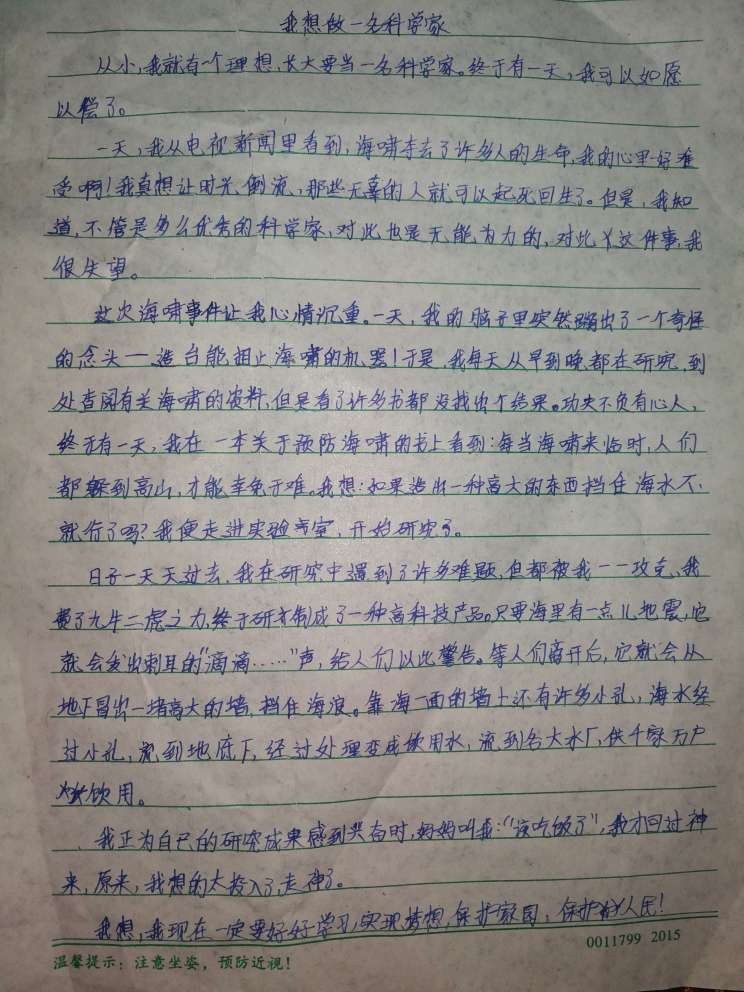 我想做一名科学家
从小,我就有个理想,长大要当一名科学家。终于有一天,我可以如愿
以偿了。
一天,我从电视新闻里看到,海啸夺去了许多人的生命,我的心里好难
受啊!我真想让时光倒流,那些无辜的人就可以起死回生了。但是,我知
道,不管是多么优秀的科学家,对此也是无能为力的,对此这件事,我
很失望。
这次海啸事件让我心情沉重。一天,我的脑子里突然蹦出了一个奇怪
的念头——造台能阻止海啸的机器!于是,我每天从早到晚都在研究,到
处查阅有关海啸的资料,但是看了许多书都没找出个结果。功夫不负有心人,
终于有一天,我在一本关于预防海啸的书上看到:每当海啸来临时,人们
都躲到高山,才能幸免于难。我想:如果造出一种高大的东西挡住海水不
就行了吗?我便走进实验室,开始研究了。
日子一天天过去,我在研究中遇到了许多难题,但都被我一一攻克,我
费了九牛二虎之力,终于研制成了一种高科技产品。只要海里有一点儿地震,它
就会发出刺耳的“滴滴……”声,给人们以此警告。等人们离开后,它就会从
地下冒出一堵高大的墙,挡住海浪。靠海一面的墙上还有许多小孔,海水经
过小孔,流到地底下,经过处理变成饮用水,流到各大水厂,供千家万户
饮用。
我正为自己的研究成果感到兴奋时,妈妈叫我:“该吃饭了”,我才回过神
来,原来,我想的太投入了,走神了。
我想,我现在一定要好好学习,实现梦想,保护家园,保护人民!
0011799 2015
温馨提示:注意坐姿,预防近视!